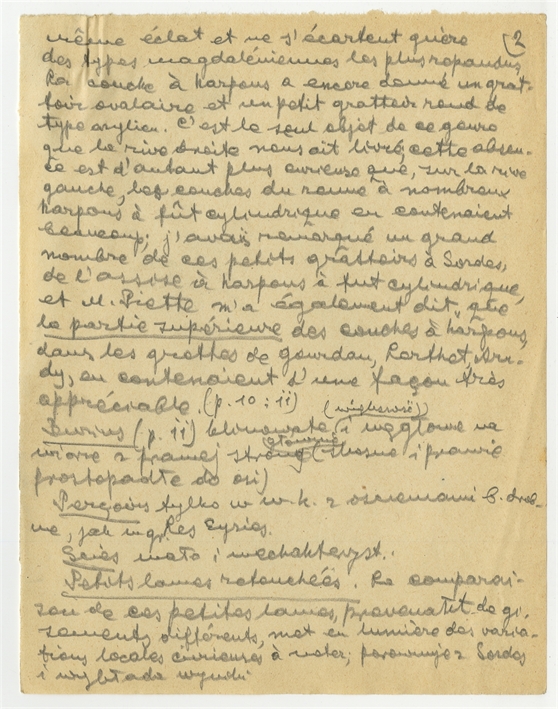 2
même éclat et ne s'écartent guère
des types magdaléniennes les plus répandus,
La couche à harpons a encore donné un grat-
toir ovalaire et un petit grattoir rond de
type azylien. C'est le seul objet de ce genre
que la rive droite nous ait livré; cette absen-
ce est d'autant plus curieuse que, sur la rive
gauche, les couches du renne à nombreux
harpons à fût cylindrique en contenaient
beaucoup; j'avais remarqué un grand
nombre de ces petits grattoirs à Sordes,
de l'assise à harpons à fut cylindrique,
et M. Piette m'a également dit que
la partie supérieure des couches à harpons,
dans les grottes de Gourdan, Lorthet, Aru-
dy, en contenaient d'une façon très
appréciable. (p. 10 : 11)
Burins (p. 11) klinowate i węgłowe na
wiórze z prawej (skośne i prawie
prostopadłe do osi)
Perçoirs tylko w w.k. z ostrzem b. drob-
ne, jak np. Les Eyzies.
Scies mało i niecharakteryst.
Petits lames retouchées. La comparai-
son de ces petites lames, provenant de gi-
sements différents, met en lumière des varia-
tions locales curieuses à noter; porównuje z Sordes
i wykłada wyniki